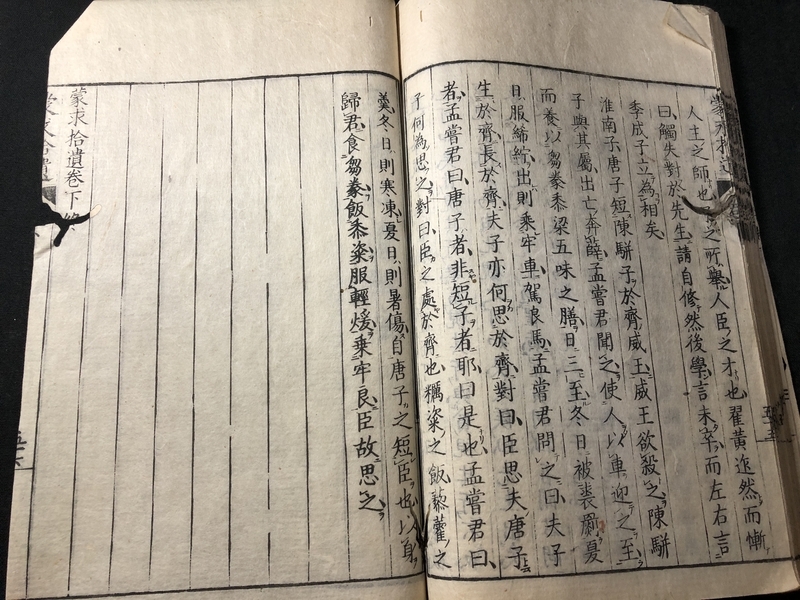 人主之師也之所舉人臣之才也翟黃迮然而慚
曰觸失對於先生請自修然後學言未卒而左右言
季成子立為相矣
淮南子唐子短陳駢子於齊威王威王欲殺之陳駢
子與其屬出亡奔薛孟嘗君聞之使人以車迎之至
而養以芻豢黍粱五味之膳日三至冬日被裘罽夏
日服絺紵出則乘牢車駕良馬孟嘗君問之曰夫子
生於齊長於齊夫子亦何思於齊對曰臣思夫唐子
者孟嘗君曰唐子者非短子者耶曰是也孟嘗君曰
子何為思之對曰臣之處於齊也糲粢之飯藜藿之
羹冬日則寒凍夏日則暑傷自唐子之短臣也以身
歸君食芻豢飯黍粢服輕煖乘牢良臣故思之
蒙求拾遺卷下終